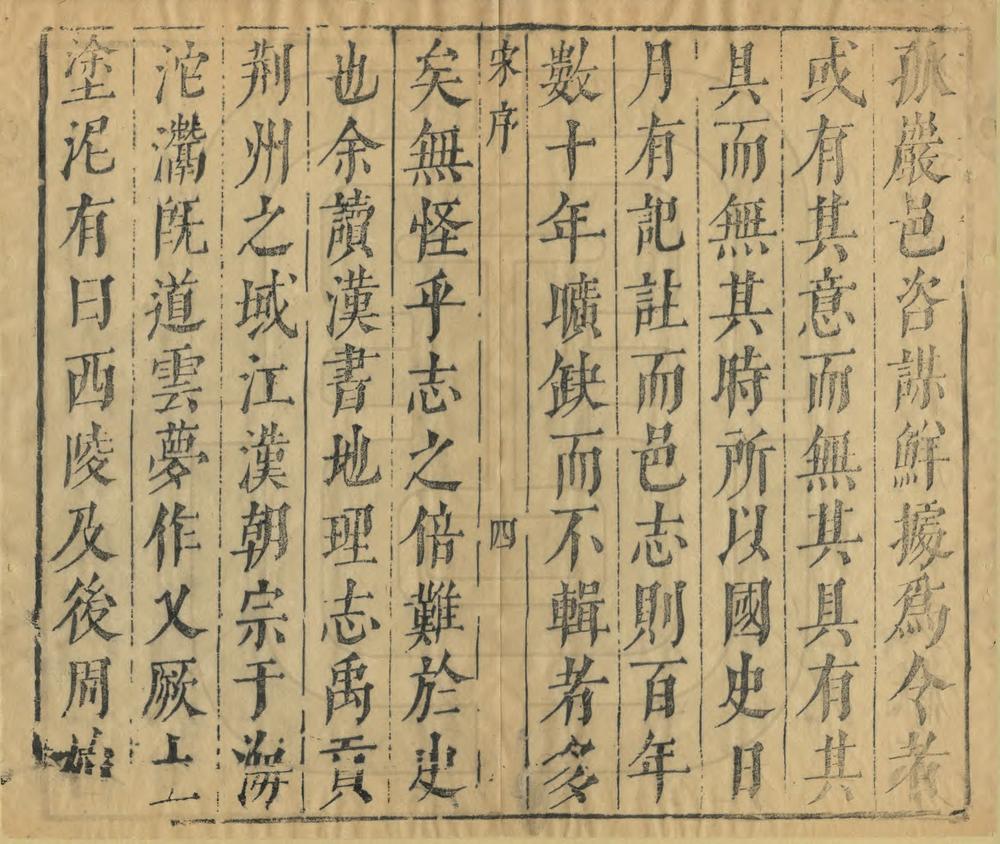 孤巖邑咨謀鮮據爲令者
或有其意而無其具有其
具而無其時所以國史日
月有記註而邑志則百年
數十年曠缺而不輯者多
宋序 四
矣無怪乎志之倍難於史
也余讀漢書地理志禹貢
荆州之域江漢朝宗于海
沱灊旣道雲夢作乂厥土
塗泥有曰西陵及後周